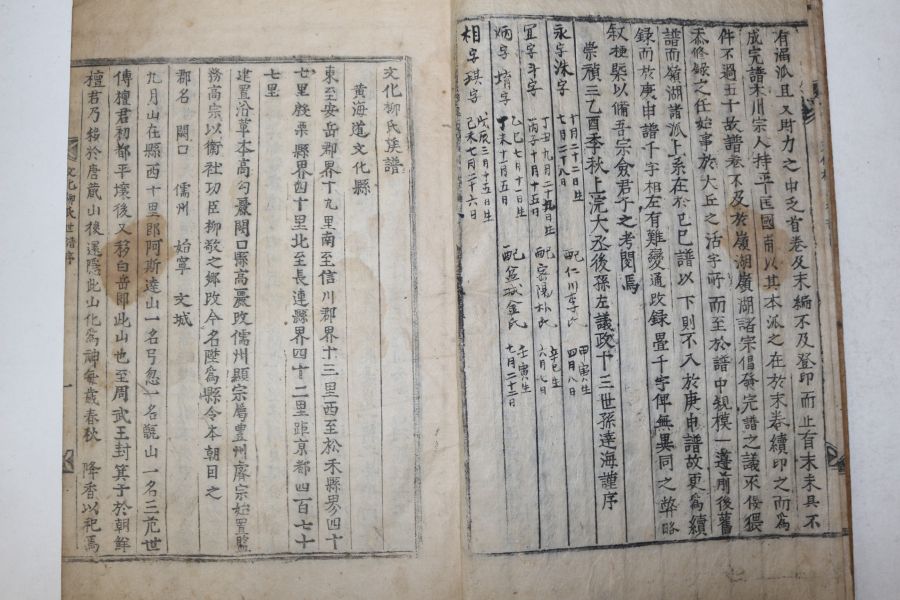 有濶派且又財力之中乏首卷及末編不及登印而止有末未具不
成完譜木川宗人持平匡國甫以其本派之在於末卷續印之而爲
件不過五十故譜卷不及於嶺湖嶺湖諸宗倡發完譜之議不佞猥
忝修錄之任始事於大丘之活字所而至於譜中規模一遵前後舊
譜而嶺湖諸派上系在於己巳譜以下則不入於庚申譜故更爲續
錄而於庚申譜千字相左有難變通改錄疊千字俾無異同之弊略
叙梗槩以備吾宗僉君子之考閱焉
崇禎三乙酉季秋上浣大丞後孫左議政十三世孫達海謹序
永字洙字
十月二十二日生
七月二十八日
配仁川李氏
甲寅生
四月八日
宜字斗字
丁丑九月二十九日生
丙子十月十五日
配密陽朴氏
辛巳生
六月七日
炳字堉字
乙巳七月十一日生
丁未十月五日
配盆城金氏
壬寅生
七月二十二日
相字琪字
戊辰三月十五日生
己未七月二十六日
文化柳氏族譜
黃海道文化縣
東至安岳郡界十九里南至信川郡界十三里西至於禾縣界四十
七里殷栗縣界四十里北至長連縣界四十二里距京都四百七十
七里
建置沿革本高勾麗闕口縣高麗改儒州顯宗屬豊州睿宗始置監
務高宗以衛社功臣柳敬之鄕改今名陞爲縣令本朝因之
郡名 闕口 儒州 始寧 文城
九月山在縣西十里郎阿斯達山一名弓忽一名甑山一名三危世
傳檀君初都平壤後又移白岳即此山也至周武王封箕子於朝鮮
檀君乃移於唐藏山後還隱此山化爲神每歲春秋 降香以祀焉
文化柳氏世譜序
一